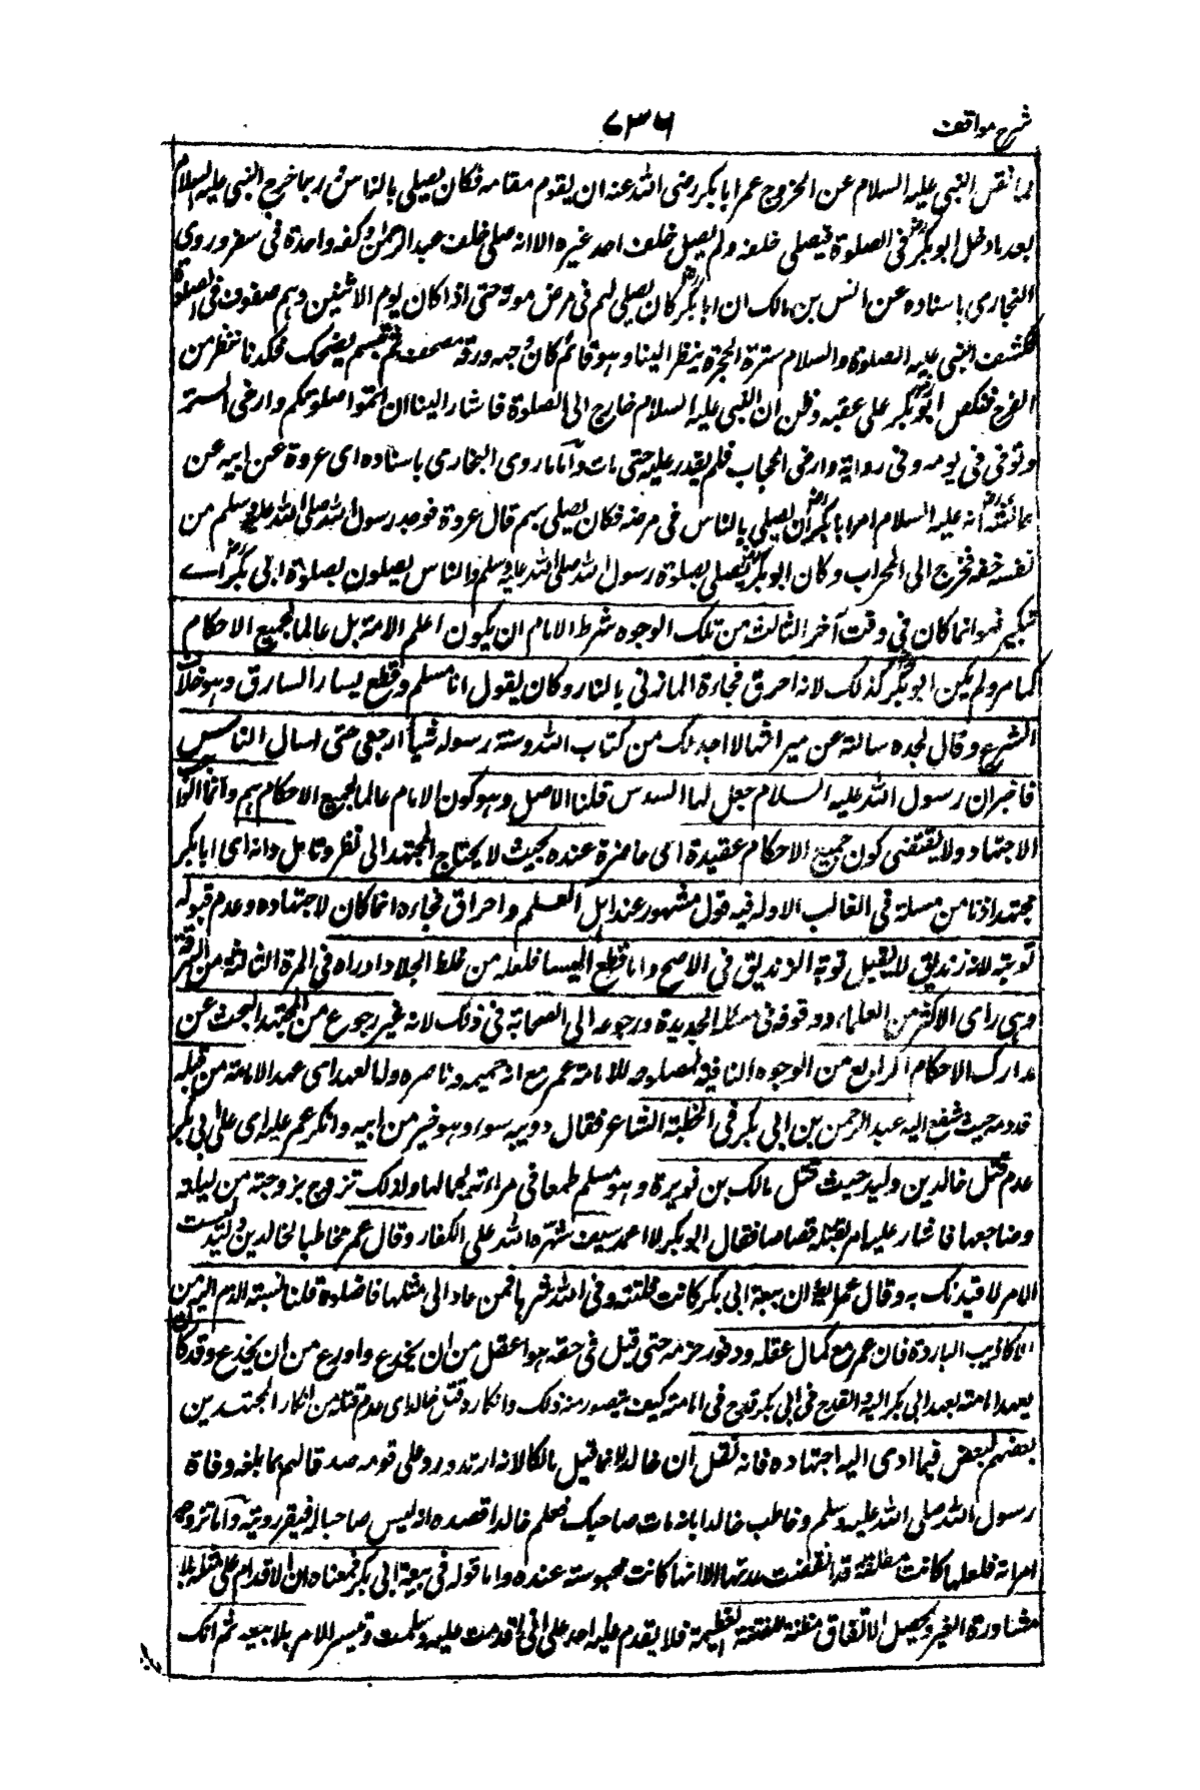 شرح مواقف
٧٣٦
لما نقص النبى عليه السلام عن الخروج امر ابا بكر رضى الله عنه ان يقوم مقامه فكان يصلى بالناس و ربما خرج النبى عليه السلام
بعد ما دخل ابو بكر رض فى الصلوة فيصلى خلفه ولم يصل خلف احد غيره الا انه صلى خلف عبد الرحمن بن عوف ركعة واحدة فى سفر و روى
البخارى باسناده عن انس بن مالك ان ابا بكر رض كان يصلى لهم فى مرض موته حتى اذا كان يوم الاثنين وهم صفوف فى الصلوة
فكشف النبى عليه الصلوة والسلام سترة الحجرة ينظر الينا وهو قائم كان وجهه ورقة مصحف ثم تبسم يضحك فكدنا نفتن من
الفرح فنكص ابو بكر رض على عقبه وظن ان النبى عليه السلام خارج الى الصلوة فاشار الينا ان اتموا صلوتكم وارخى الستر
وتوفى فى يومه وفى رواية وارخى الحجاب فلم يقدر عليه حتى مات و اما ما روى البخارى باسناده اى عروة عن ابيه عن
عائشة رض انه عليه السلام امر ابا بكر رض ان يصلى بالناس فى مرضه فكان يصلى بهم قال عروة فوجد رسول الله صلى الله عليه وسلم من
نفسه خفة فخرج الى المحراب وكان ابو بكر رض يصلى بصلوة رسول الله صلى الله عليه وسلم والناس يصلون بصلوة ابى بكر رض اے
تكبيره فهو انما كان فى وقت آخر الثالث من تلك الوجوه شرط الامام ان يكون اعلم الامة بل عالما لجميع الاحكام
كما مر ولم يكن ابو بكر رض كذلك لانه احرق فجاءة المازنى بالنار وكان يقول انا مسلم وقطع يسار السارق وهو خلاف
الشرع وقال لجدة سالته عن ميراثها لا اجد لك من كتاب الله وسنة رسوله شيأ ارجعى حتى اسال الناس
فاخبر ان رسول الله عليه السلام جعل لها السدس قلنا الاصل وهو كون الامام عالما لجميع الاحكام مم وانما الواجب
الاجتهاد ولا يقتضى كون جميع الاحكام عقيدة اى حاضرة عنده بحيث لا يحتاج المجتهد الى نظر وتامل وانه اى ابا بكر
مجتهد اذ ما من مسئلة فى الغالب الا وله فيه قول مشهور عند اهل العلم و احراق فجاءه انما كان لاجتهاده وعدم قبوله
توبته لانه زنديق لا يقبل توبة الزنديق فى الاصح واما قطع اليسار فلعله من غلط الجلاد او راه فى المرة الثالثة من السرقة
وهى راى الاكثر من العلماء و وقوفه فى مسئلة الجدة ورجوعه الى الصحابة فى ذلك لانه غير رجوع من المجتهد البحث عن
مدارك الاحكام الرابع من الوجوه النافية لصلوحه للامامة عمر مع انه حميمه وناصره وله العهد اى عهد الامامة من قبله
قد ذمه حيث شفع اليه عبد الرحمن بن ابى بكر فى الحطيئة الشاعر فقال دويبة سوء وهو خير من ابيه وانكر عمر عليه اى على ابى بكر
عدم قتل خالد بن وليد حيث قتل مالك بن نويرة وهو مسلم طمعا فى مراءته لجمالها ولذلك تزوج بزوجته من ليلته
وضاجعها فاشار عليه عمر بقتله قصاصا فقال ابو بكر لا اغمد سيفا شهره الله على الكفار وقال عمر مخاطبا لخالد لئن وليت
الامر لاقيدنك به وقال عمر ايضا ان بيعة ابى بكر كانت فلتة وقى الله شرها فمن عاد الى مثلها فاقتلوه قلنا نسبة الذم اليه من
الاكاذيب الباردة فان عمر مع كمال عقله ووفور حزمه حتى قيل فى حقه هو اعقل من ان يخدع و اورع من ان يخدع وقد كان
يعهد امامته بعهد ابى بكر اليه والقدح فى ابى بكر قدح فى امامته كيف يتصور منه ذلك وانكاره قتل خالد اى عدم قتله من انكار المجتهدين
بعضهم لبعض فيما ادى اليه اجتهاده فانه نقل ان خالدا انما قتل مالكا لانه ارتد ورد على قومه صدقاتهم لما بلغه وفاة
رسول الله صلى الله عليه وسلم وخاطب خالدا بانه مات صاحبك فعلم خالد قصده انه ليس صاحبا له فتيقن ردته و اما تزوجه
امراته فلعلها كانت مطلقة قد انقضت عدتها الا انها كانت محبوسة عنده واما قوله فى بيعة ابى بكر فمعناه ان الاقدام على مثله بلا
مشاورة الغير و يحصل الاتفاق مظنة للفتنة العظيمة فلا يقدم عليه احد على انى اقدمت عليه وسلمت وتيسر الامر بلا تبعة ثم انك